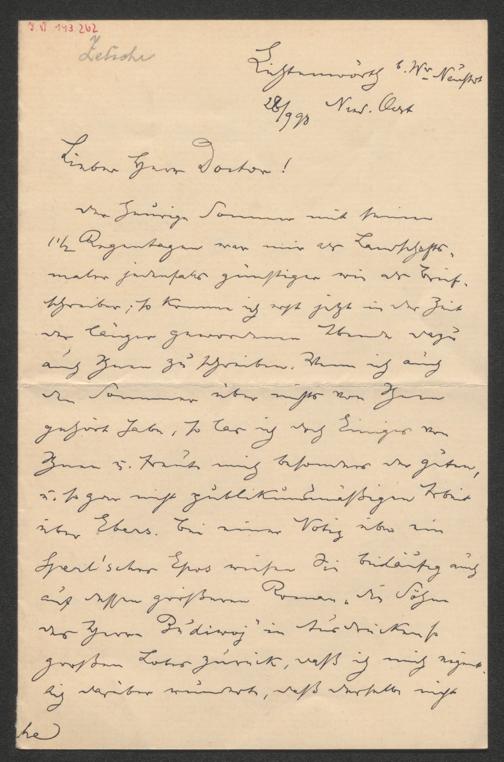 I.N. 143.262
Zetsche
Lichtenwörth b. Wr Neustadt
28/9 90 Nied. Oest
Lieber Herr Doctor!
Der heurige Sommer mit seinen
1½ Regentagen war mir als Landschafts-
maler jedenfalls günstiger wie als Brief-
schreiber; so komme ich erst jetzt in der Zeit
der länger gewordenen Abende dazu
auch Ihnen zu schreiben. Wenn ich auch
den Sommer über nichts von Ihnen
gehört habe, so las ich doch Einiges von
Ihnen u. freute mich besonders der guten,
u. so gar nicht publikumsmäßigen Arbeit
über Ebers. Bei einer Notiz über ein
Sperl'sches Epos weisen Sie beiläufig auch
auf dessen größeren Roman „die Söhne
des Herrn Budiwoj" in Ausdrücken so
großen Lobes zurück, daß ich mich eigent-
lich darüber wunderte, daß derselbe nicht